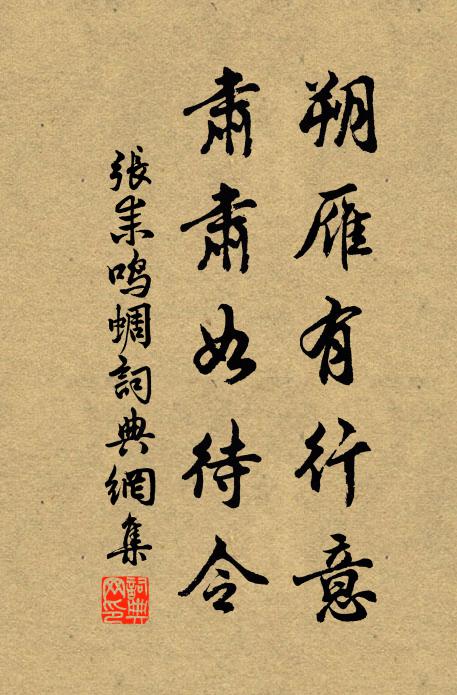 朔雁有行意
肅肅如待令
張耒鳴蜩詞典網集
詞典
网印